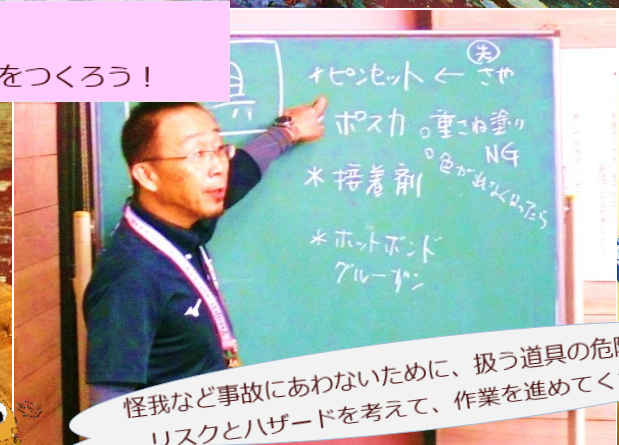 をつくろう！
具
*ピンセット ← さや
*ポスカ 。重さね塗り
NG
。色が出なくなったら
*接着剤
*ホットボンド
グルーガン
怪我など事故にあわないために、扱う道具の危
リスクとハザードを考えて、作業を進めてく